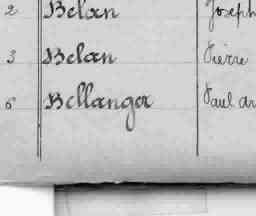 2 Belan Joseph
3 Belan Pierre
6 Bellanger Paul